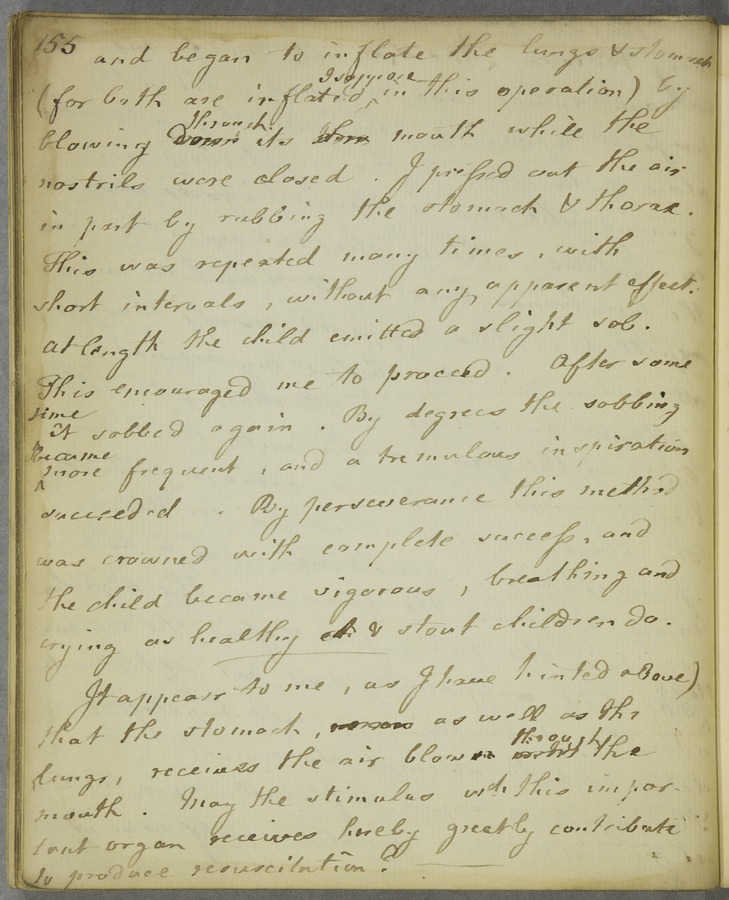 155 and began to inflate the lungs & stomach
I suppose
(for both are inflated, in this operation) by
through
blowing its mouth while the
nostrils were closed. I pressed out the air
in part by rubbing the stomach & thorax.
This was repeated many times, with
short intervals, without any apparent effect.
At length the child emitted a slight sob.
This encouraged me to proceed. After some
time
it sobbed again. By degrees the sobbing
became
more frequent, and a tremulous inspiration
succeeded. By perseverance this method
was crowned with complete success, and
the child became vigorous, breathing and
crying as healthy & stout children do.
It appears to me, as I have hinted above)
that the stomach, as well as the
through
lungs, receives the air blown the
mouth. May the stimulus wch this impor-
tant organ receives hereby greatly contribute
to produce resuscitation?